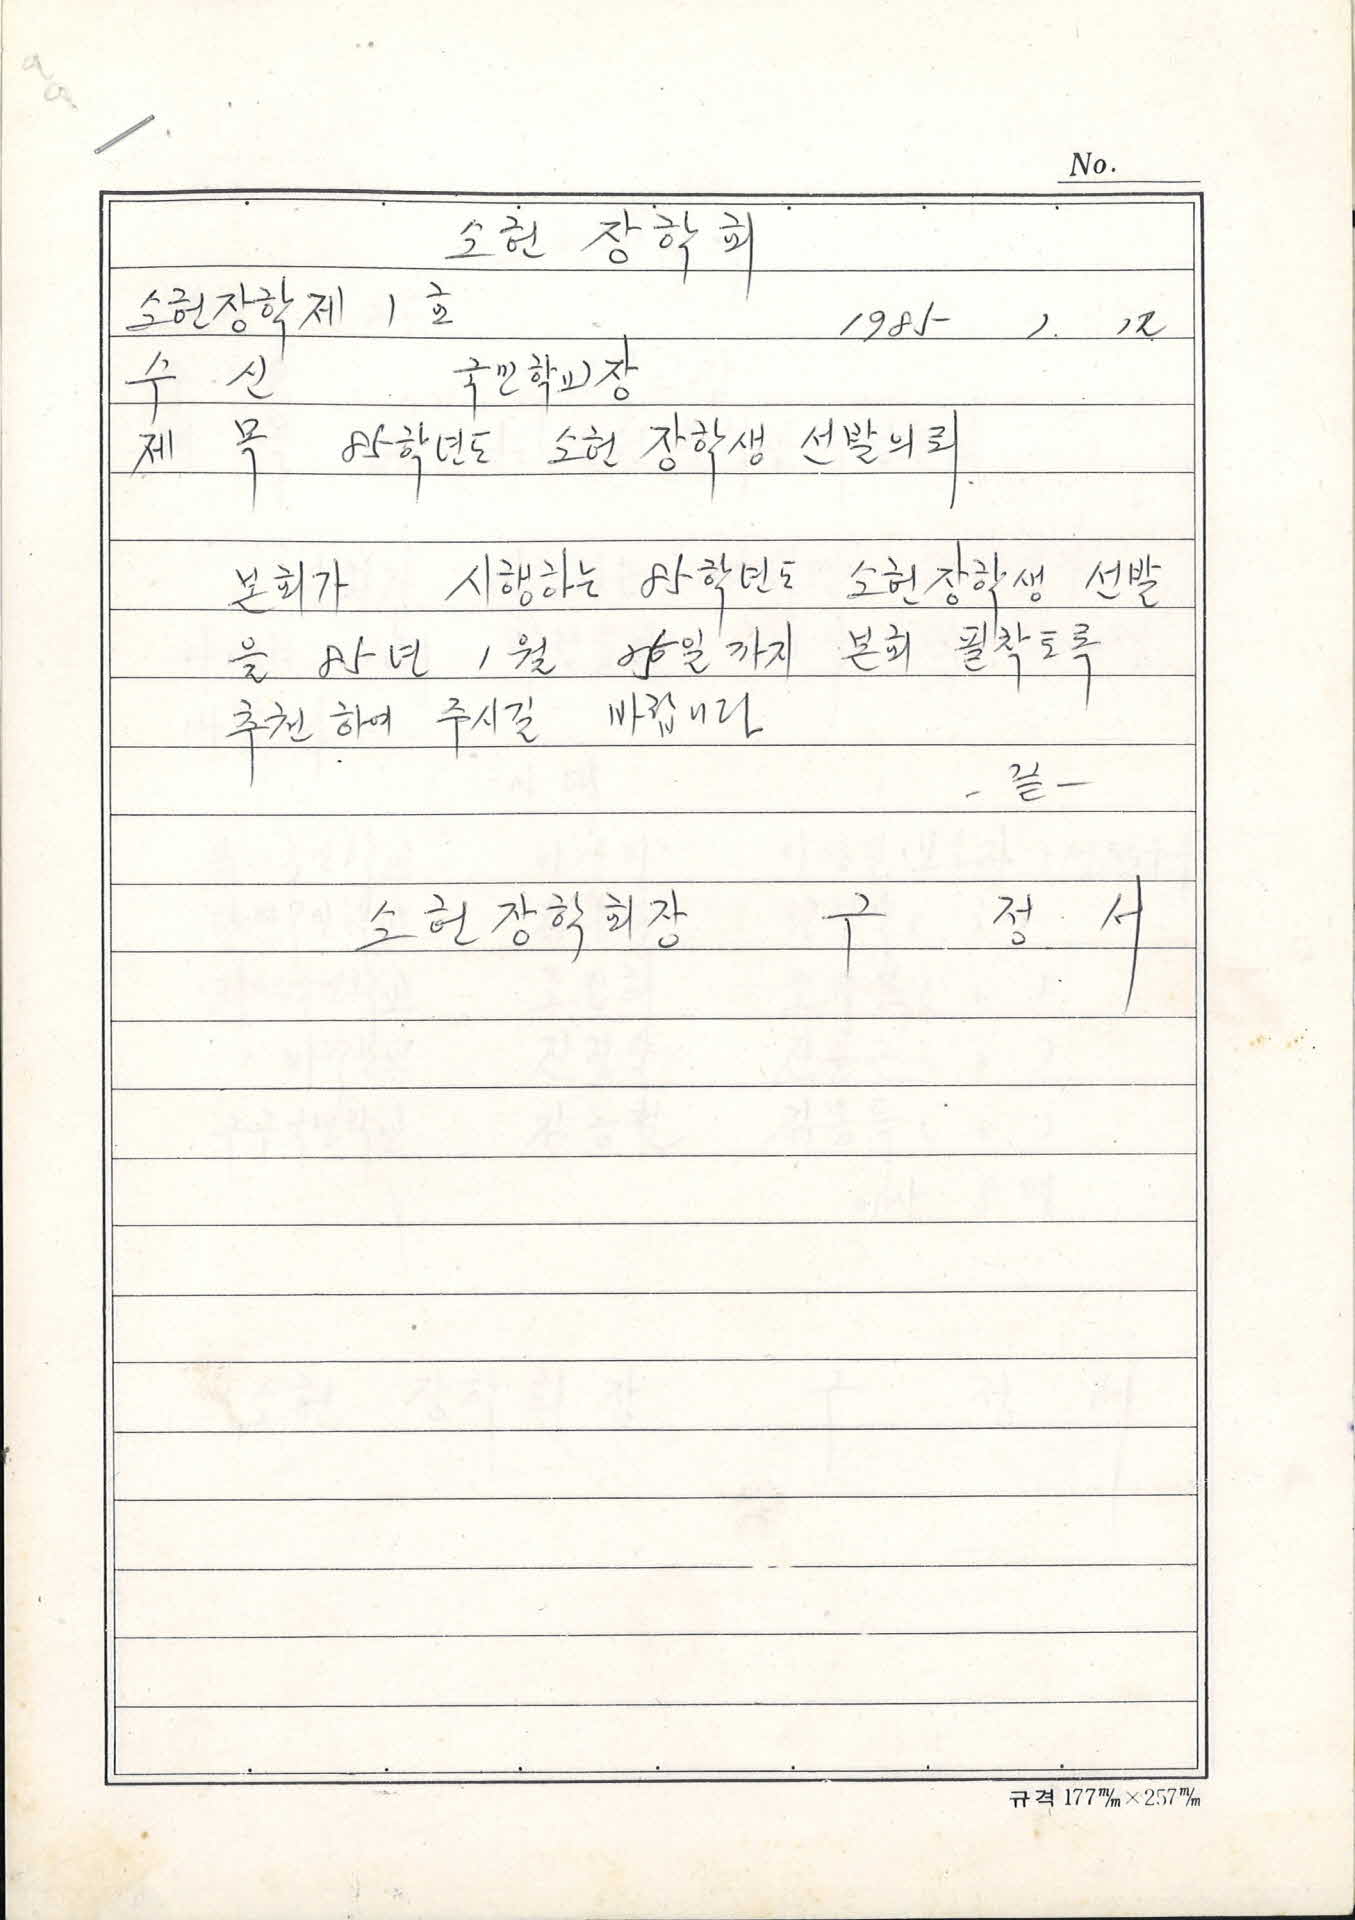 No.
소헌 장학회
소헌장학제 1 호 1985 1. 12
수 신 국민학교장
제 목 85학년도 소헌 장학생 선발의뢰
본회가 시행하는 85학년도 소헌장학생 선발
을 85년 1월 일까지 본회 필착토록
추천하여 주시길 바랍니다
- 끝 -
소헌장학회장 구 정 서
규격 177m/m×257m/m